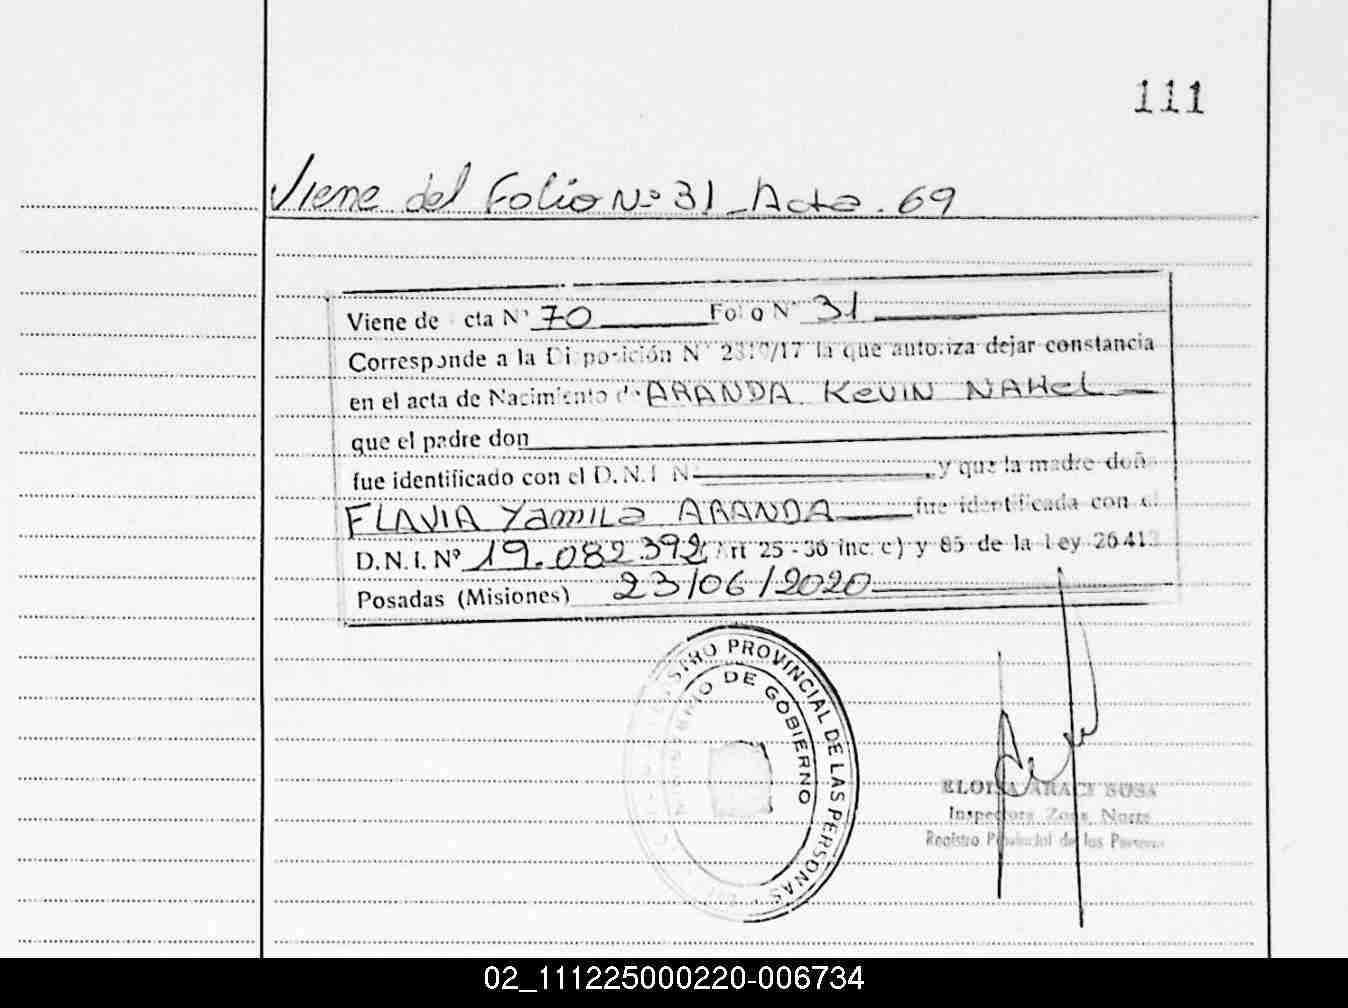 111
Viene del Folio Nº 31 - Acta. 69
Viene de cta Nº 70 Folio Nº 31
Corresponde a la Disposición Nº /17 la que autoriza dejar constancia
en el acta de Nacimiento de ARANDA Kevin NAHeL
que el padre don
fue identificado con el D.N.I Nº y que la madre doña
FLAVIA Yamila ARANDA fue identificada con el
D.N.I. Nº 19.082.392 (Art 25 - 36 inc. c) y 85 de la Ley 26413
Posadas (Misiones) 23/06/2020
REGISTRO PROVINCIAL DE LAS PERSONAS
MINISTERIO DE GOBIERNO
ELOISA ARACI SOSA
Inspectora Zona Norte
Registro Provincial de las Personas
02_111225000220-006734